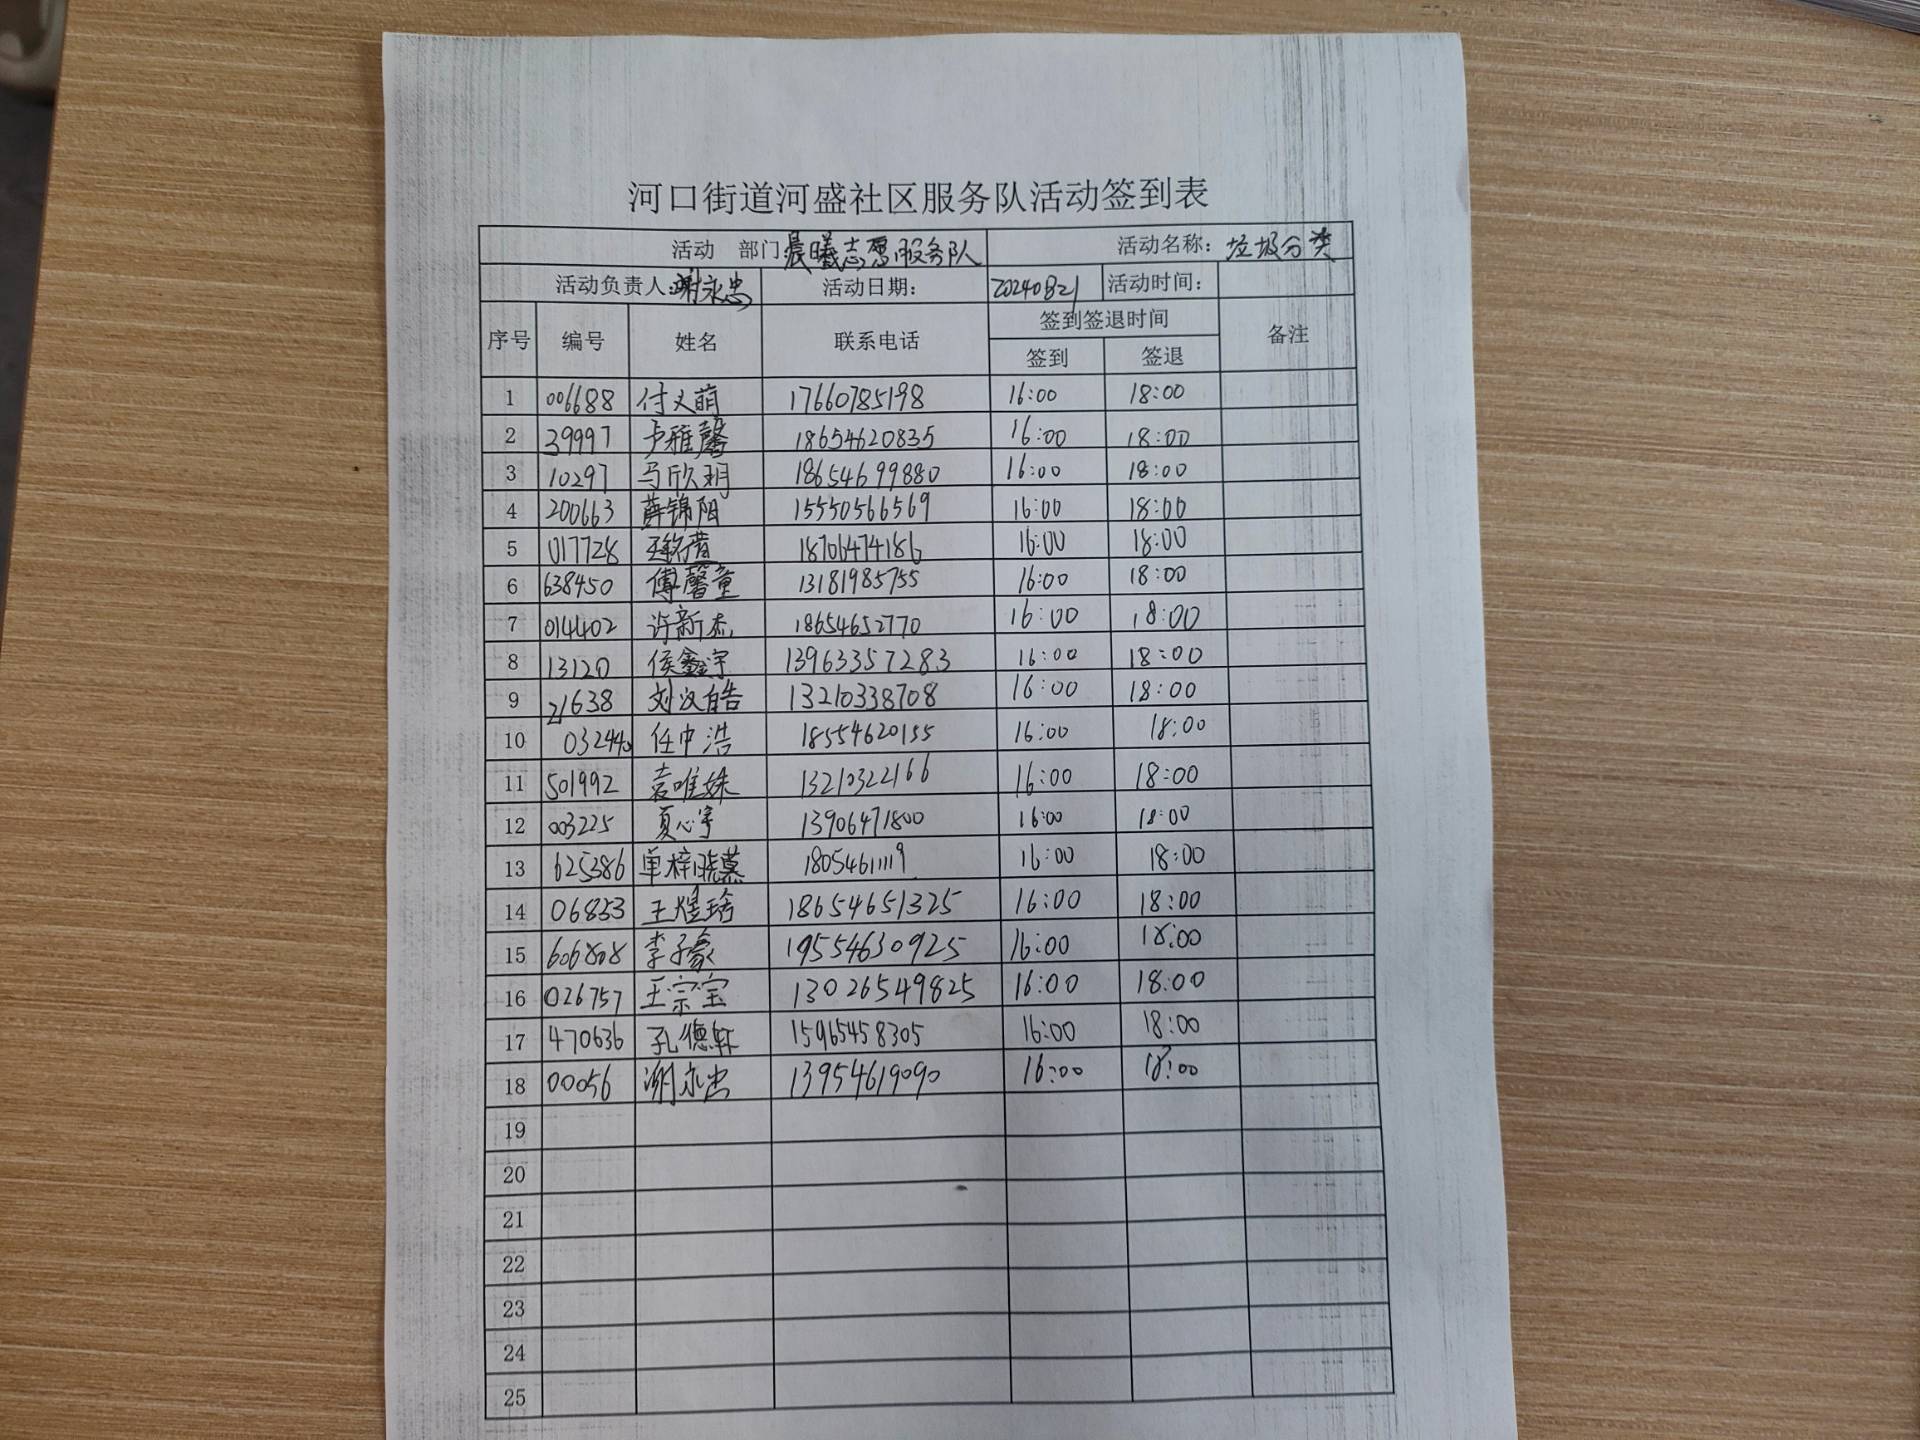 河口街道河盛社区服务队活动签到表
活动 部门:晨曦志愿服务队 活动名称: 垃圾分类
活动负责人:谢永忠 活动日期: 20240821 活动时间:
序号 编号 姓名 联系电话 签到签退时间 备注
签到 签退
1 006688 付义萌 17660785198 16:00 18:00
2 39997 卢雅馨 18654620835 16:00 18:00
3 10297 马欣玥 18654699880 16:00 18:00
4 200663 薛锦阳 15550566569 16:00 18:00
5 017728 18706474186 16:00 18:00
6 638450 傅馨童 13181985755 16:00 18:00
7 014402 许新杰 18654652770 16:00 18:00
8 13120 侯鑫宇 13963357283 16:00 18:00
9 21638 刘汉皓 13210338708 16:00 18:00
10 032440 任中浩 18554620155 16:00 18:00
11 501992 袁唯姝 13210322166 16:00 18:00
12 003225 夏心宇 13906471800 16:00 18:00
13 625386 单梓晓慕 18054611119 16:00 18:00
14 06833 王煜琦 18654651325 16:00 18:00
15 606808 李子豪 19554630925 16:00 18:00
16 026757 王宗宝 13026549825 16:00 18:00
17 470636 孔德轩 15965458305 16:00 18:00
18 00056 谢永忠 13954619090 16:00 18:00
19
20
21
22
23
24
25